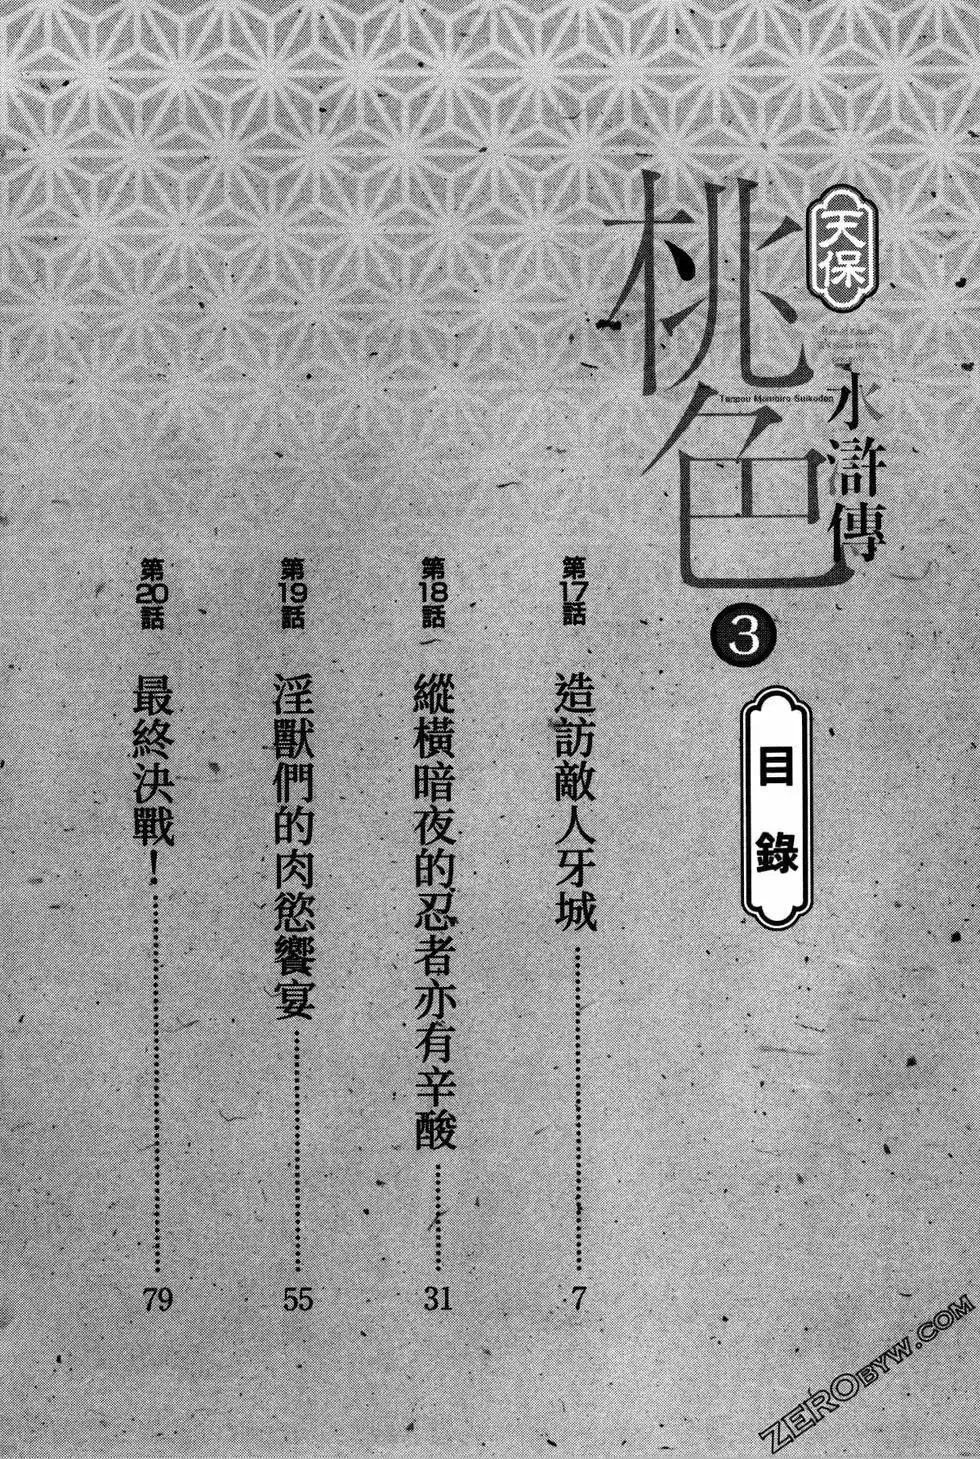 天保
桃色
水滸傳
Tenpou Momoiro Suikoden
3
目錄
第17話 造訪敵人牙城 7
第18話 縱橫暗夜的忍者亦有辛酸 31
第19話 淫獸們的肉慾饗宴 55
第20話 最終決戰！ 79
ZEROBYW.COM